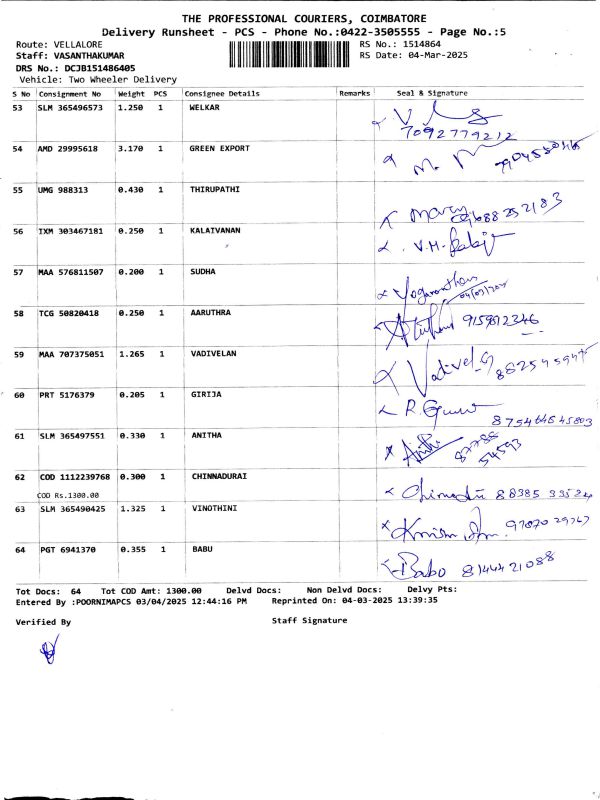 THE PROFESSIONAL COURIERS, COIMBATORE
Delivery Runsheet - PCS - Phone No.:0422-3505555 - Page No.:5
Route: VELLALORE RS No.: 1514864
Staff: VASANTHAKUMAR RS Date: 04-Mar-2025
DRS No.: DCJB151486405
Vehicle: Two Wheeler Delivery
S No Consignment No Weight PCS Consignee Details Remarks Seal & Signature
53 SLM 365496573 1.250 1 WELKAR
7092779212
54 AMD 29995618 3.170 1 GREEN EXPORT
55 UMG 988313 0.430 1 THIRUPATHI
Mary
56 IXM 303467181 0.250 1 KALAIVANAN
V.M.
57 MAA 576811507 0.200 1 SUDHA
58 TCG 50820418 0.250 1 AARUTHRA
9159812346
59 MAA 707375051 1.265 1 VADIVELAN
Vadivel
60 PRT 5176379 0.205 1 GIRIJA
R.
61 SLM 365497551 0.330 1 ANITHA
87788
54593
62 COD 1112239768 0.300 1 CHINNADURAI
COD Rs.1300.00
88385 33524
63 SLM 365490425 1.325 1 VINOTHINI
64 PGT 6941370 0.355 1 BABU
Babo 8144421088
Tot Docs: 64 Tot COD Amt: 1300.00 Delvd Docs: Non Delvd Docs: Delvy Pts:
Entered By :POORNIMAPCS 03/04/2025 12:44:16 PM Reprinted On: 04-03-2025 13:39:35
Verified By Staff Signature